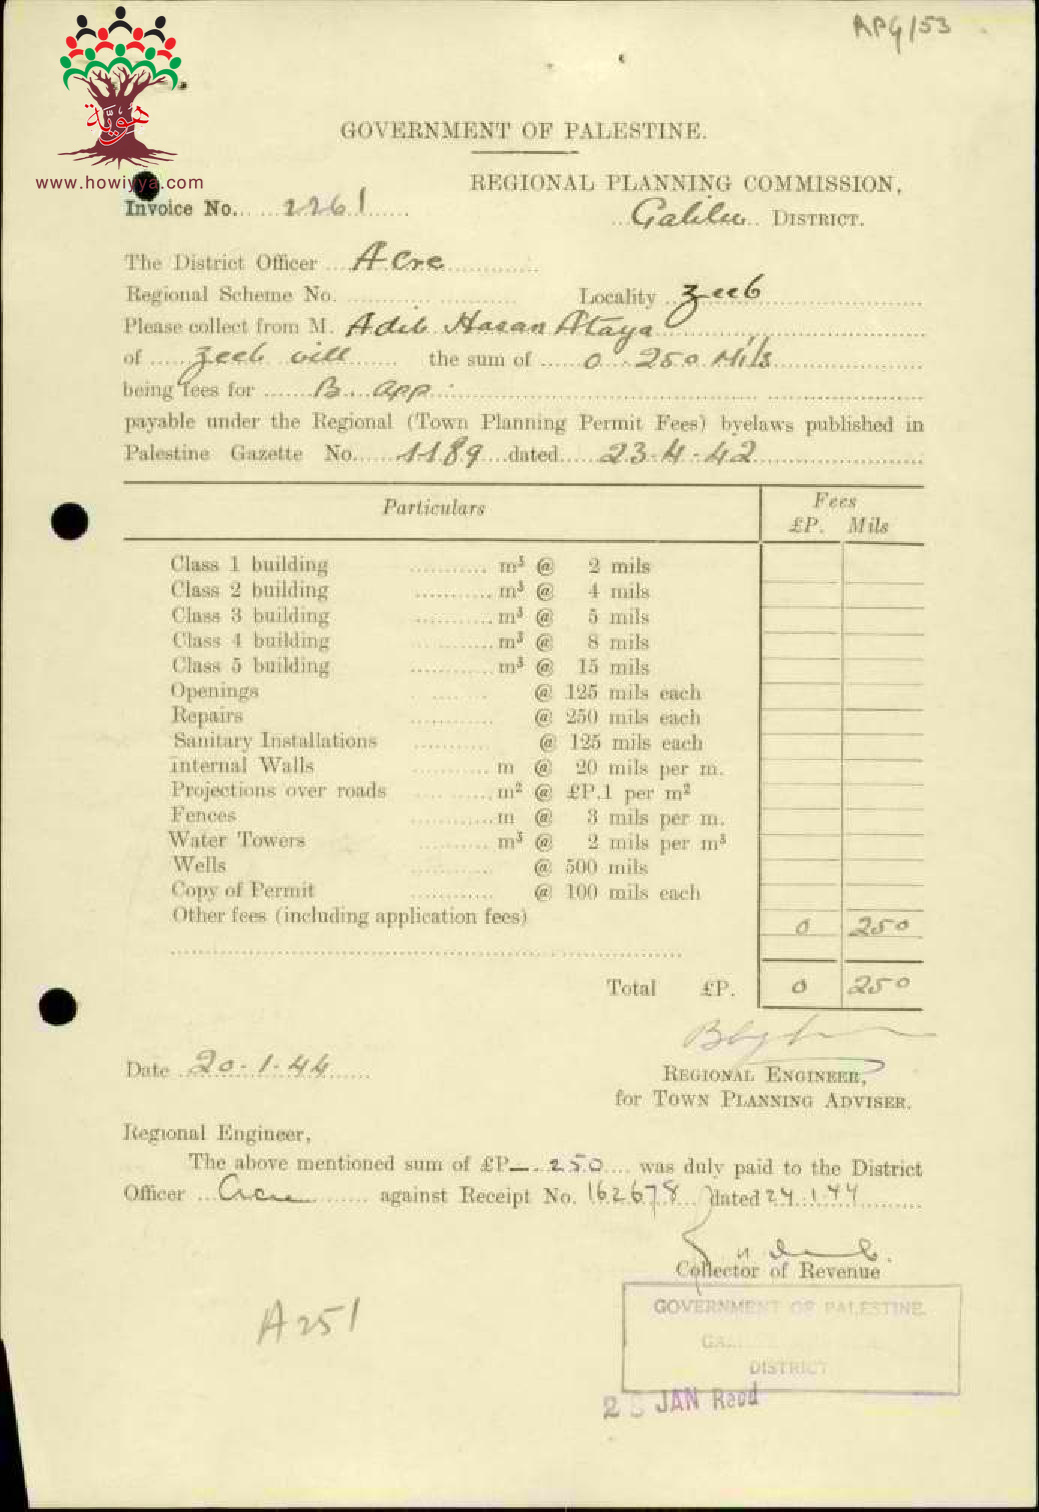 APG/53
هوية
www.howiyya.com
GOVERNMENT OF PALESTINE.
REGIONAL PLANNING COMMISSION,
Invoice No. 2261
Galilee DISTRICT.
The District Officer Acre
Regional Scheme No. Locality Zeeb
Please collect from M. Adib Hasan Ataya
of Zeeb vill the sum of 0 250 Mils
being fees for B. app.
payable under the Regional (Town Planning Permit Fees) byelaws published in
Palestine Gazette No. 1189 dated 23-4-42
Particulars Fees
£P. Mils
Class 1 building m³ @ 2 mils
Class 2 building m³ @ 4 mils
Class 3 building m³ @ 5 mils
Class 4 building m³ @ 8 mils
Class 5 building m³ @ 15 mils
Openings @ 125 mils each
Repairs @ 250 mils each
Sanitary Installations @ 125 mils each
Internal Walls m @ 20 mils per m.
Projections over roads m² @ £P.1 per m²
Fences m @ 3 mils per m.
Water Towers m³ @ 2 mils per m³
Wells @ 500 mils
Copy of Permit @ 100 mils each
Other fees (including application fees) 0 250
Total £P. 0 250
Date 20-1-44
REGIONAL ENGINEER,
for TOWN PLANNING ADVISER.
Regional Engineer,
The above mentioned sum of £P—.250 was duly paid to the District
Officer Acre against Receipt No. 162678 dated 24.1.44
Collector of Revenue
A251
GOVERNMENT OF PALESTINE.
DISTRICT
JAN Recd